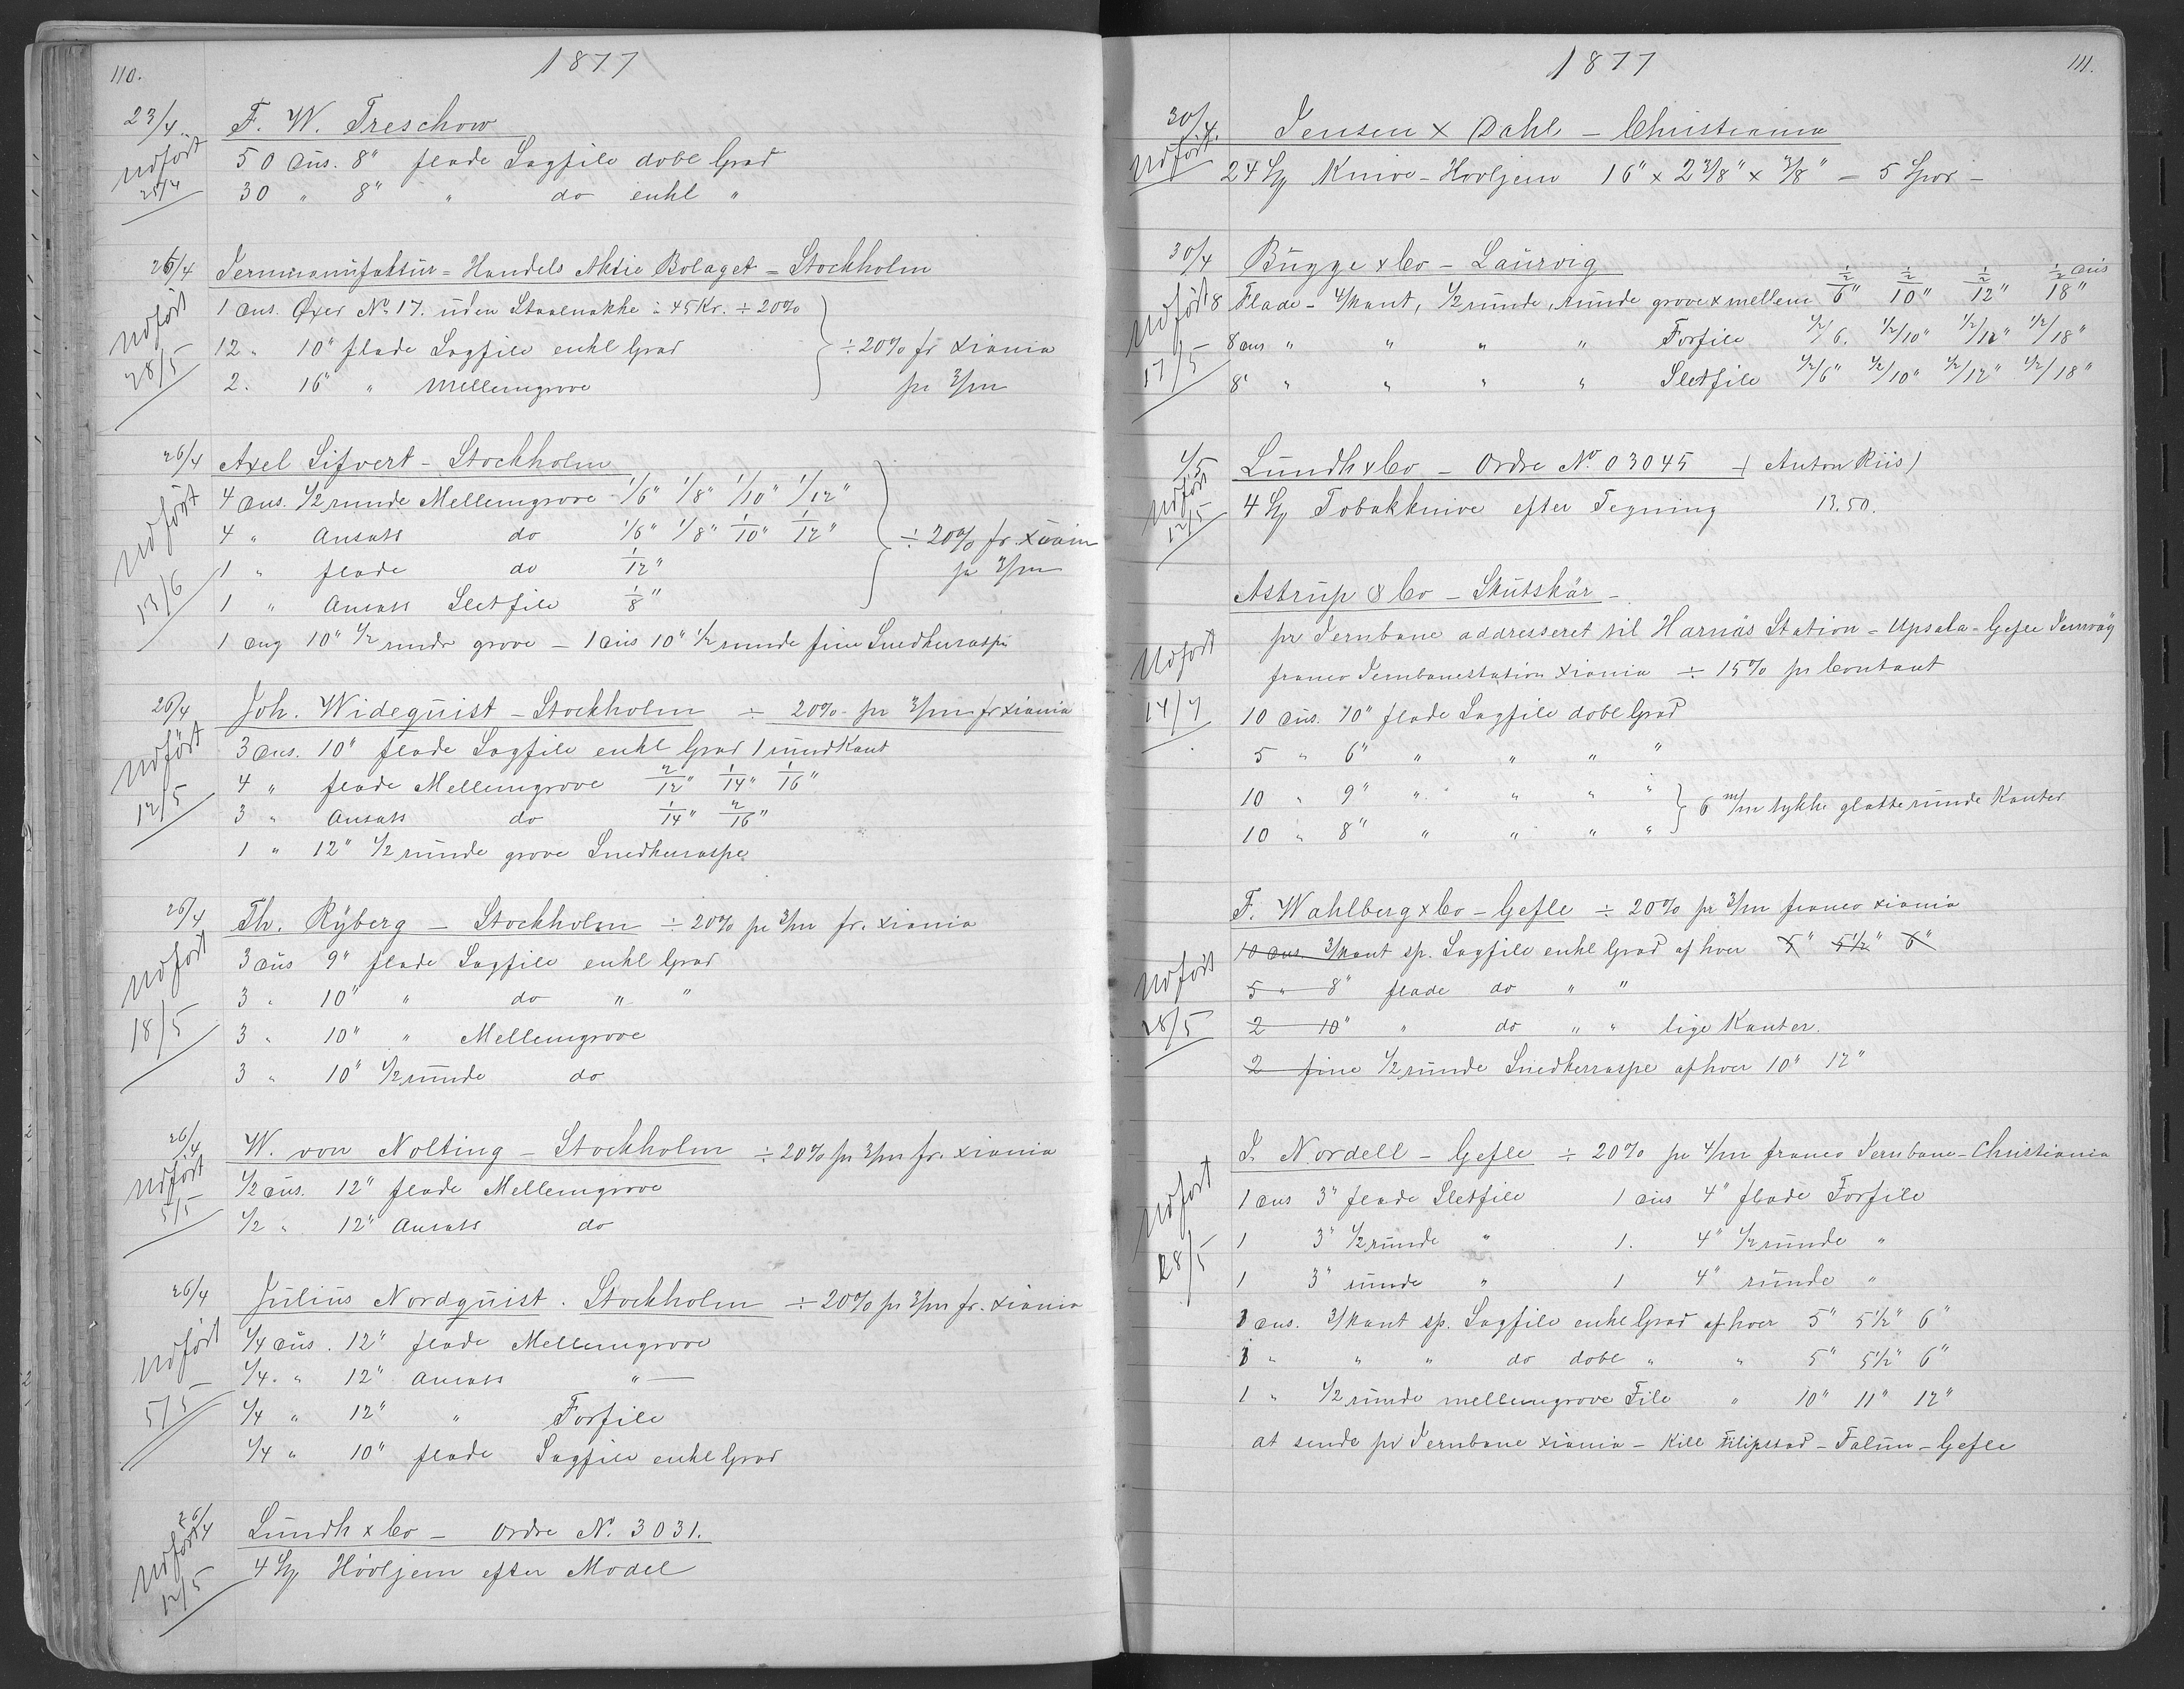 110.
1877
23/4
F. W. Treschow
Udført
25/4
50 Dus. 8" flade Sagfile dobl Grad
30 " 8" " do enkl "
25/4
Jernmanufaktur-Handels Aktie Bolaget - Stockholm
Udført
28/5
1 Dus. Øxer No 17. uden Staalnakke à 45 Kr. ÷ 20%
12 " 10" flade Sagfile enkl Grad } ÷ 20% fr Xiania
2. 16" " Mellemgrove pr 3/m
26/4
Axel Sifvert - Stockholm
Udført
13/6
4 Dus. 1/2 runde Mellemgrove 1/6" 1/8" 1/10" 1/12"
4 " Ansats do 1/6" 1/8" 1/10" 1/12" } ÷ 20% fr. Xiania
1 " flade do 1/12" pr 3/m
1 " Ansats Sletfile 1/8"
1 Dus 10" 1/2 runde grove - 1 Dus 10" 1/2 runde fine Snedkeraspe
26/4
Joh. Widequist - Stockholm ÷ 20% pr 3/m fr Xiania
Udført
12/5
3 Dus. 10" flade Sagfile enkl Grad 1 rund Kant
4 " flade Mellemgrove 2/12" 1/14" 1/16"
3 " Ansats do 1/14" 2/16"
1 " 12" 1/2 runde grove Snedkeraspe
26/4
Th. Ryberg - Stockholm ÷ 20% pr 3/m fr. Xiania
Udført
18/5
3 Dus 9" flade Sagfile enkl Grad
3 " 10" " do " "
3 " 10" " Mellemgrove
3 " 10" 1/2 runde do
26/4
W. von Nolting - Stockholm ÷ 20% pr 3/m fr. Xiania
Udført
5/5
1/2 Dus. 12" flade Mellemgrove
1/2 " 12" Ansats do
26/4
Julius Nordquist. Stockholm ÷ 20% pr 3/m fr. Xiania
Udført
5/5
1/4 Dus. 12" flade Mellemgrove
1/4. " 12" Ansats " —
1/4 " 12" " Forfile
1/4 " 10" flade Sagfile enkl Grad
26/4
Lundh x Co - Ordre No. 3031.
Udført
12/5
4 St Høvljern efter Model
1877
111.
30/4.
Jensen x Dahl - Christiania
Udført
24 St Knive-Hovljern 16" x 2 3/8" x 3/8" = 5 Spor -
30/4
Bugge x Co - Laurvig
Udført
17/5
8 Flade - 4/kant, 1/2 runde, runde grove x mellem 1/2/6" 1/2/10" 1/2/12" 1/2/18" Dus
8 Dus " " " " Forfile 1/2/6. 1/2/10" 1/2/12" 1/2/18"
8" " " " " Sletfile 1/2/6" 1/2/10" 1/2/12" 1/2/18"
4/5
Lundh x Co - Ordre No. 03045 - (Anton Riis)
Udført
12/5
4 St Tobakknive efter Tegning 13.50.
Astrup & Co - Skutskär -
pr Jernbane addresseret til Harnäs Station - Upsala-Gefle Jernväg
Udført
14/7
franco Jernbanestation Xiania ÷ 15% pr Contant
10 Dus. 10" flade Sagfile dobl Grad
5 " 6" " " " "
10 " 9" " " " " } 6 m/m tykke glatte runde Kanter
10 " 8" " " " "
F. Wahlberg x Co - Gefle ÷ 20% pr 3/m franco Xiania
Udført
28/5
10 Dus. 3/kant sp. Sagfile enkl Grad af hver 5" 5 1/2" 6"
5 " 8" flade do " "
2 10" " do " " lige Kanter.
2 fine 1/2 runde Snedkerraspe af hver 10" 12"
J. Nordell - Gefle ÷ 20% pr 4/m franco Jernbane-Christiania
Udført
28/5
1 Dus 3" flade Sletfile 1 Dus 4" flade Forfile
1 3" 1/2 runde " 1. 4" 1/2 runde "
1 3" runde " 1 4" runde "
1 Dus. 3/kant sp. Sagfile enkl Grad af hver 5" 5 1/2" 6"
1 " " " do dobl " " 5" 5 1/2" 6"
1 " 1/2 runde mellemgrove File " 10" 11" 12"
at sende pr Jernbane Xiania - Kill Filipstad - Falun - Gefle